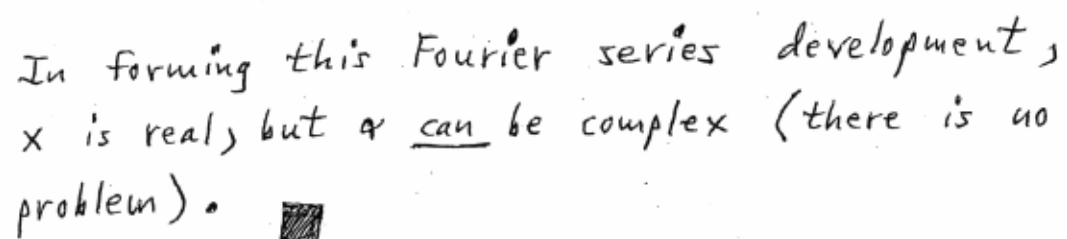 In forming this Fourier series development,
x is real, but α can be complex (there is no
problem). ■